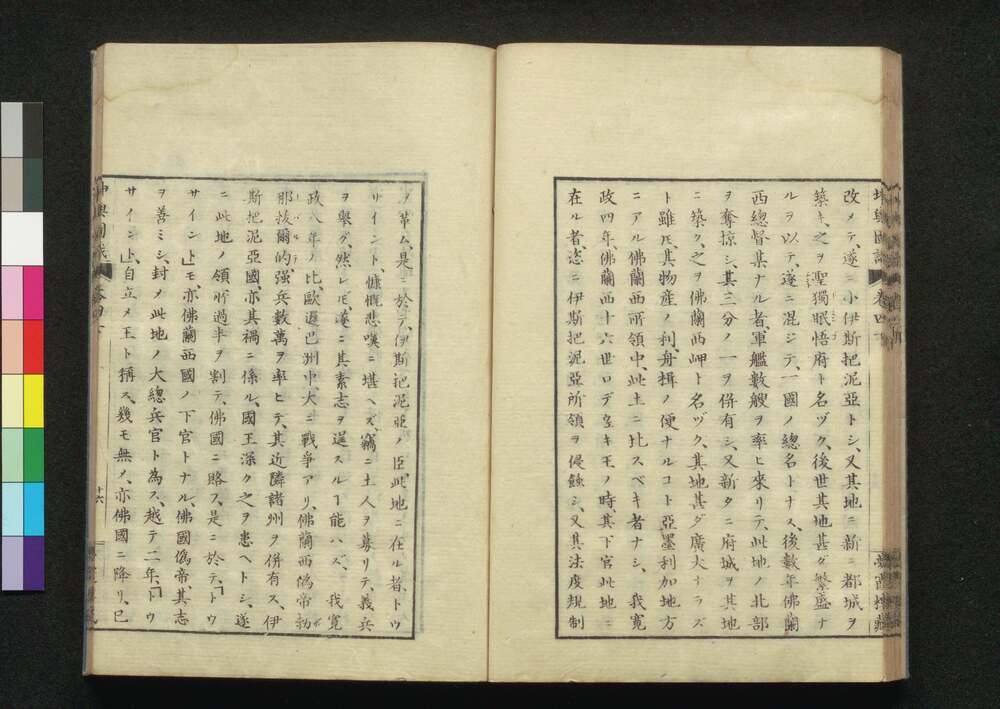 坤輿圖識 卷四下
改メテ、遂ニ小伊斯把泥亞トシ、又其地ニ新ニ都城ヲ
築キ、之ヲ聖獨眠悟府ト名ヅク、後世其地甚ダ繁盛ナ
ルヲ以テ、遂ニ混ジテ、一國ノ總名トナス、後數年佛蘭
西總督某ナル者、軍艦數艘ヲ率ヒ來リテ、此地ノ北部
ヲ奪掠シ、其三分ノ一ヲ併有シ、又新タニ府城ヲ其地
ニ築ク、之ヲ佛蘭西岬ト名ヅク、其地甚ダ廣大ナラズ
ト雖𪜈、其物產ノ利、舟楫ノ便ナルコト、亞墨利加地方
ニアル佛蘭西所領中、此土ニ比スベキ者ナシ、我寛
政四年、佛蘭西十六世ロデウェキ王ノ時、其下官此地ニ
在ル者、恣ニ伊斯把泥亞所領ヲ侵蝕シ、又其法度規制
ヲ革ム、是ニ於テ、伊斯把泥亞ノ臣、此地ニ在ル者、トウ
サイント、慷慨悲嘆ニ堪ヘズ、竊ニ土人ヲ募リテ、義兵
ヲ擧グ、然レ𪜈、遂ニ其素志ヲ逞スルヿ能ハズ、我寛
政八年ノ比、歐邏巴洲中、大ニ戰爭アリ、佛蘭西僞帝勃
那抜爾的强兵數萬ヲ率ヒテ、其近隣諸州ヲ併有ス、伊
斯把泥亞國、亦其禍ニ係ル、國王深ク之ヲ患ヘトシ、遂
ニ此地ノ領所過半ヲ割テ、佛國ニ賂フ、是ニ於テ、「トウ
サイント」モ、亦佛蘭西國ノ下官トナル、佛國僞帝、其志
ヲ善ミシ、封メ此地ノ大總兵官ト為ス、越テ二年、「トウ
サイント」、自立メ王ト稱ス、幾モ無メ、亦佛國ニ降リ、已
十六